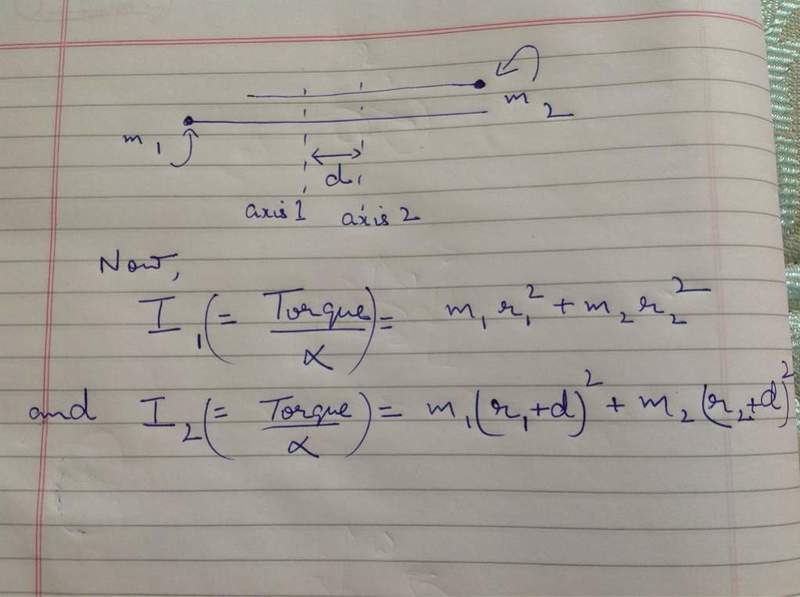 m₂
m₁
d
axis 1 axis 2
Now,
I₁ (= Torque/α) = m₁r₁² + m₂r₂²
and I₂ (= Torque/α) = m₁(r₁+d)² + m₂(r₂+d)²